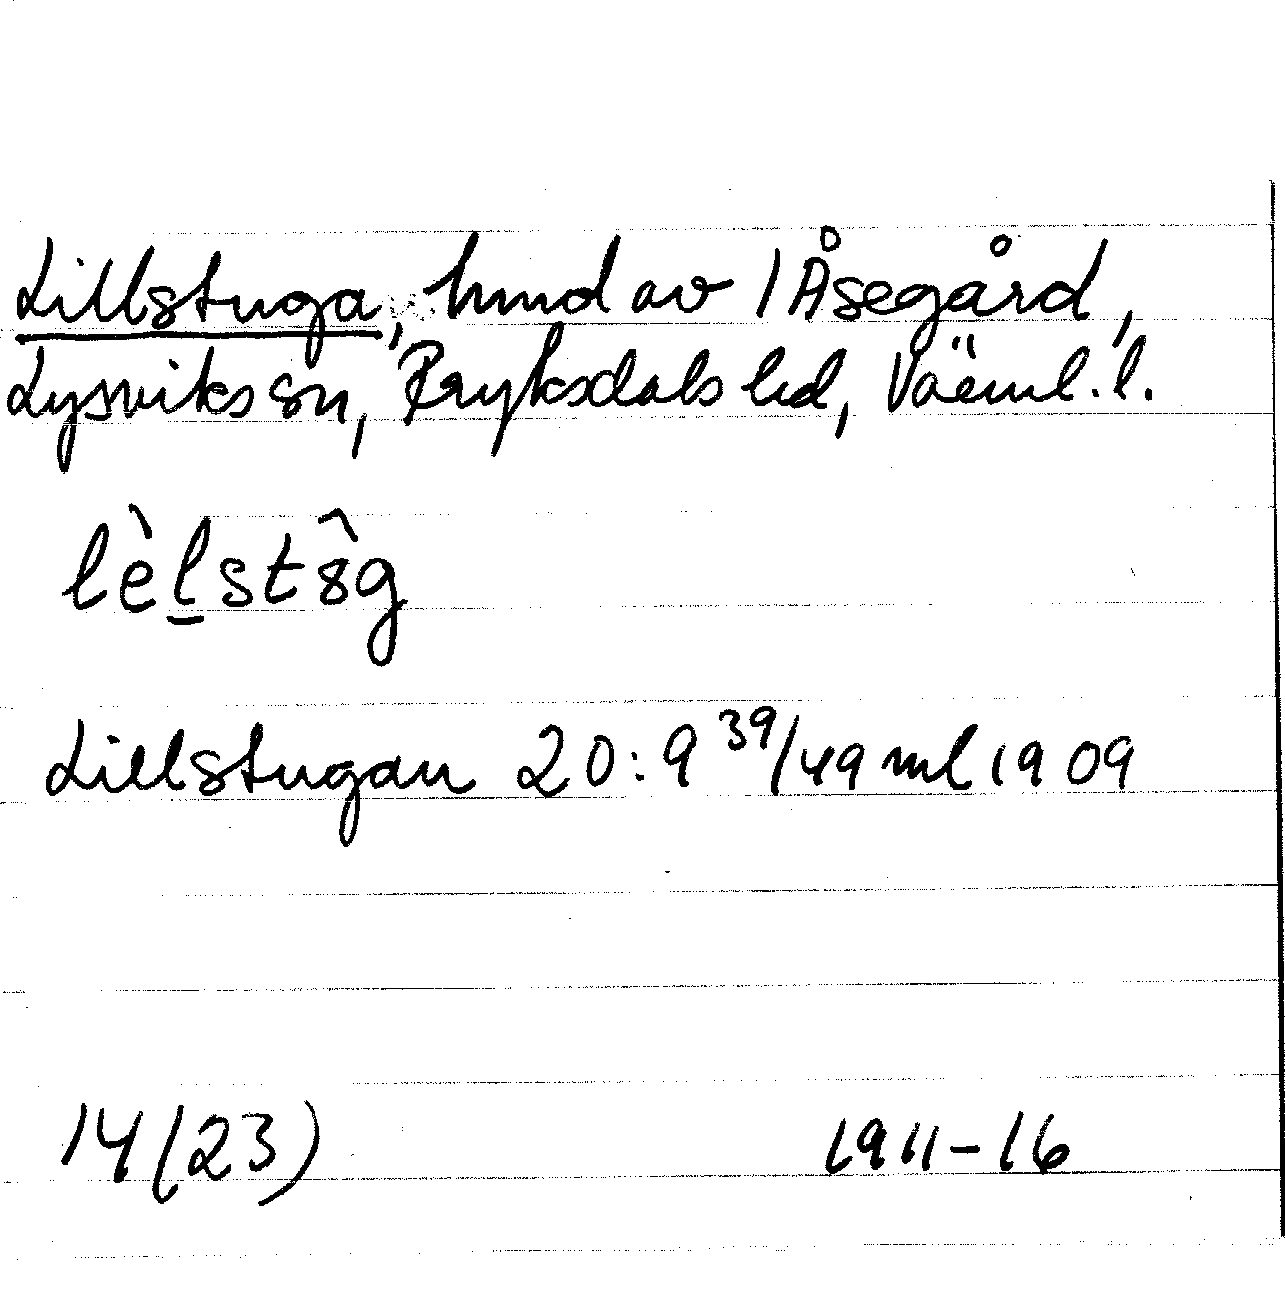 Lillstuga, hmd av 1 Åsegård,
Lysviks sn, Fryksdals hd, Värml. l.
lèlstôg
Lillstugan 20:9 39/49 ml 1909
14 (23) 1911-16